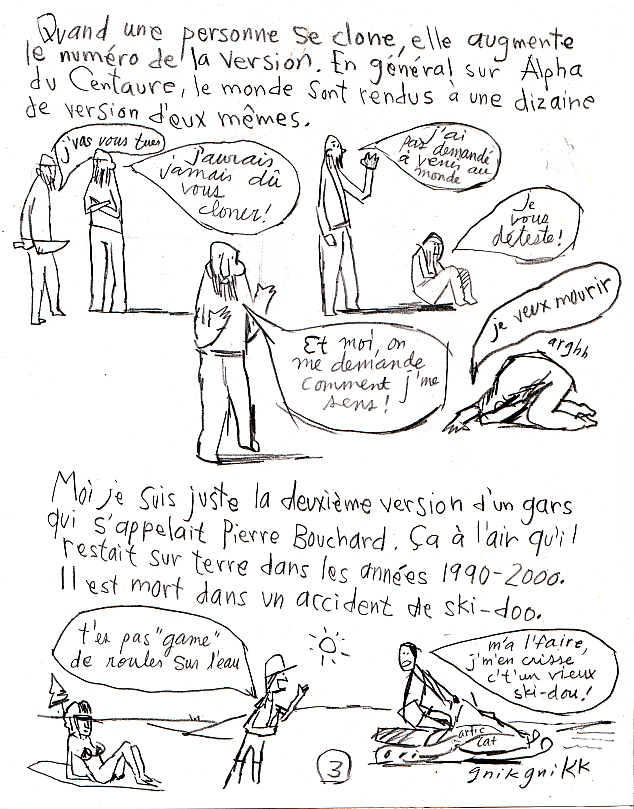 Quand une personne se clone, elle augmente
le numéro de la version. En général sur Alpha
du Centaure, le monde sont rendus à une dizaine
de version d'eux mêmes.
j'vas vous tuer
j'aurais
jamais dû
vous
cloner!
j'ai
pas demandé
à venir au
monde
Je
vous
déteste!
je veux mourir
arghh
Et moi, on
me demande
comment j'me
sens!
Moi je suis juste la deuxième version d'un gars
qui s'appelait Pierre Bouchard. Ça à l'air qu'il
restait sur terre dans les années 1990-2000.
Il est mort dans un accident de ski-doo.
t'es pas "game"
de rouler sur l'eau
m'a l'faire,
j'm'en crisse
c't'un vieux
ski-dou!
artic
cat
3
gnikgnikk